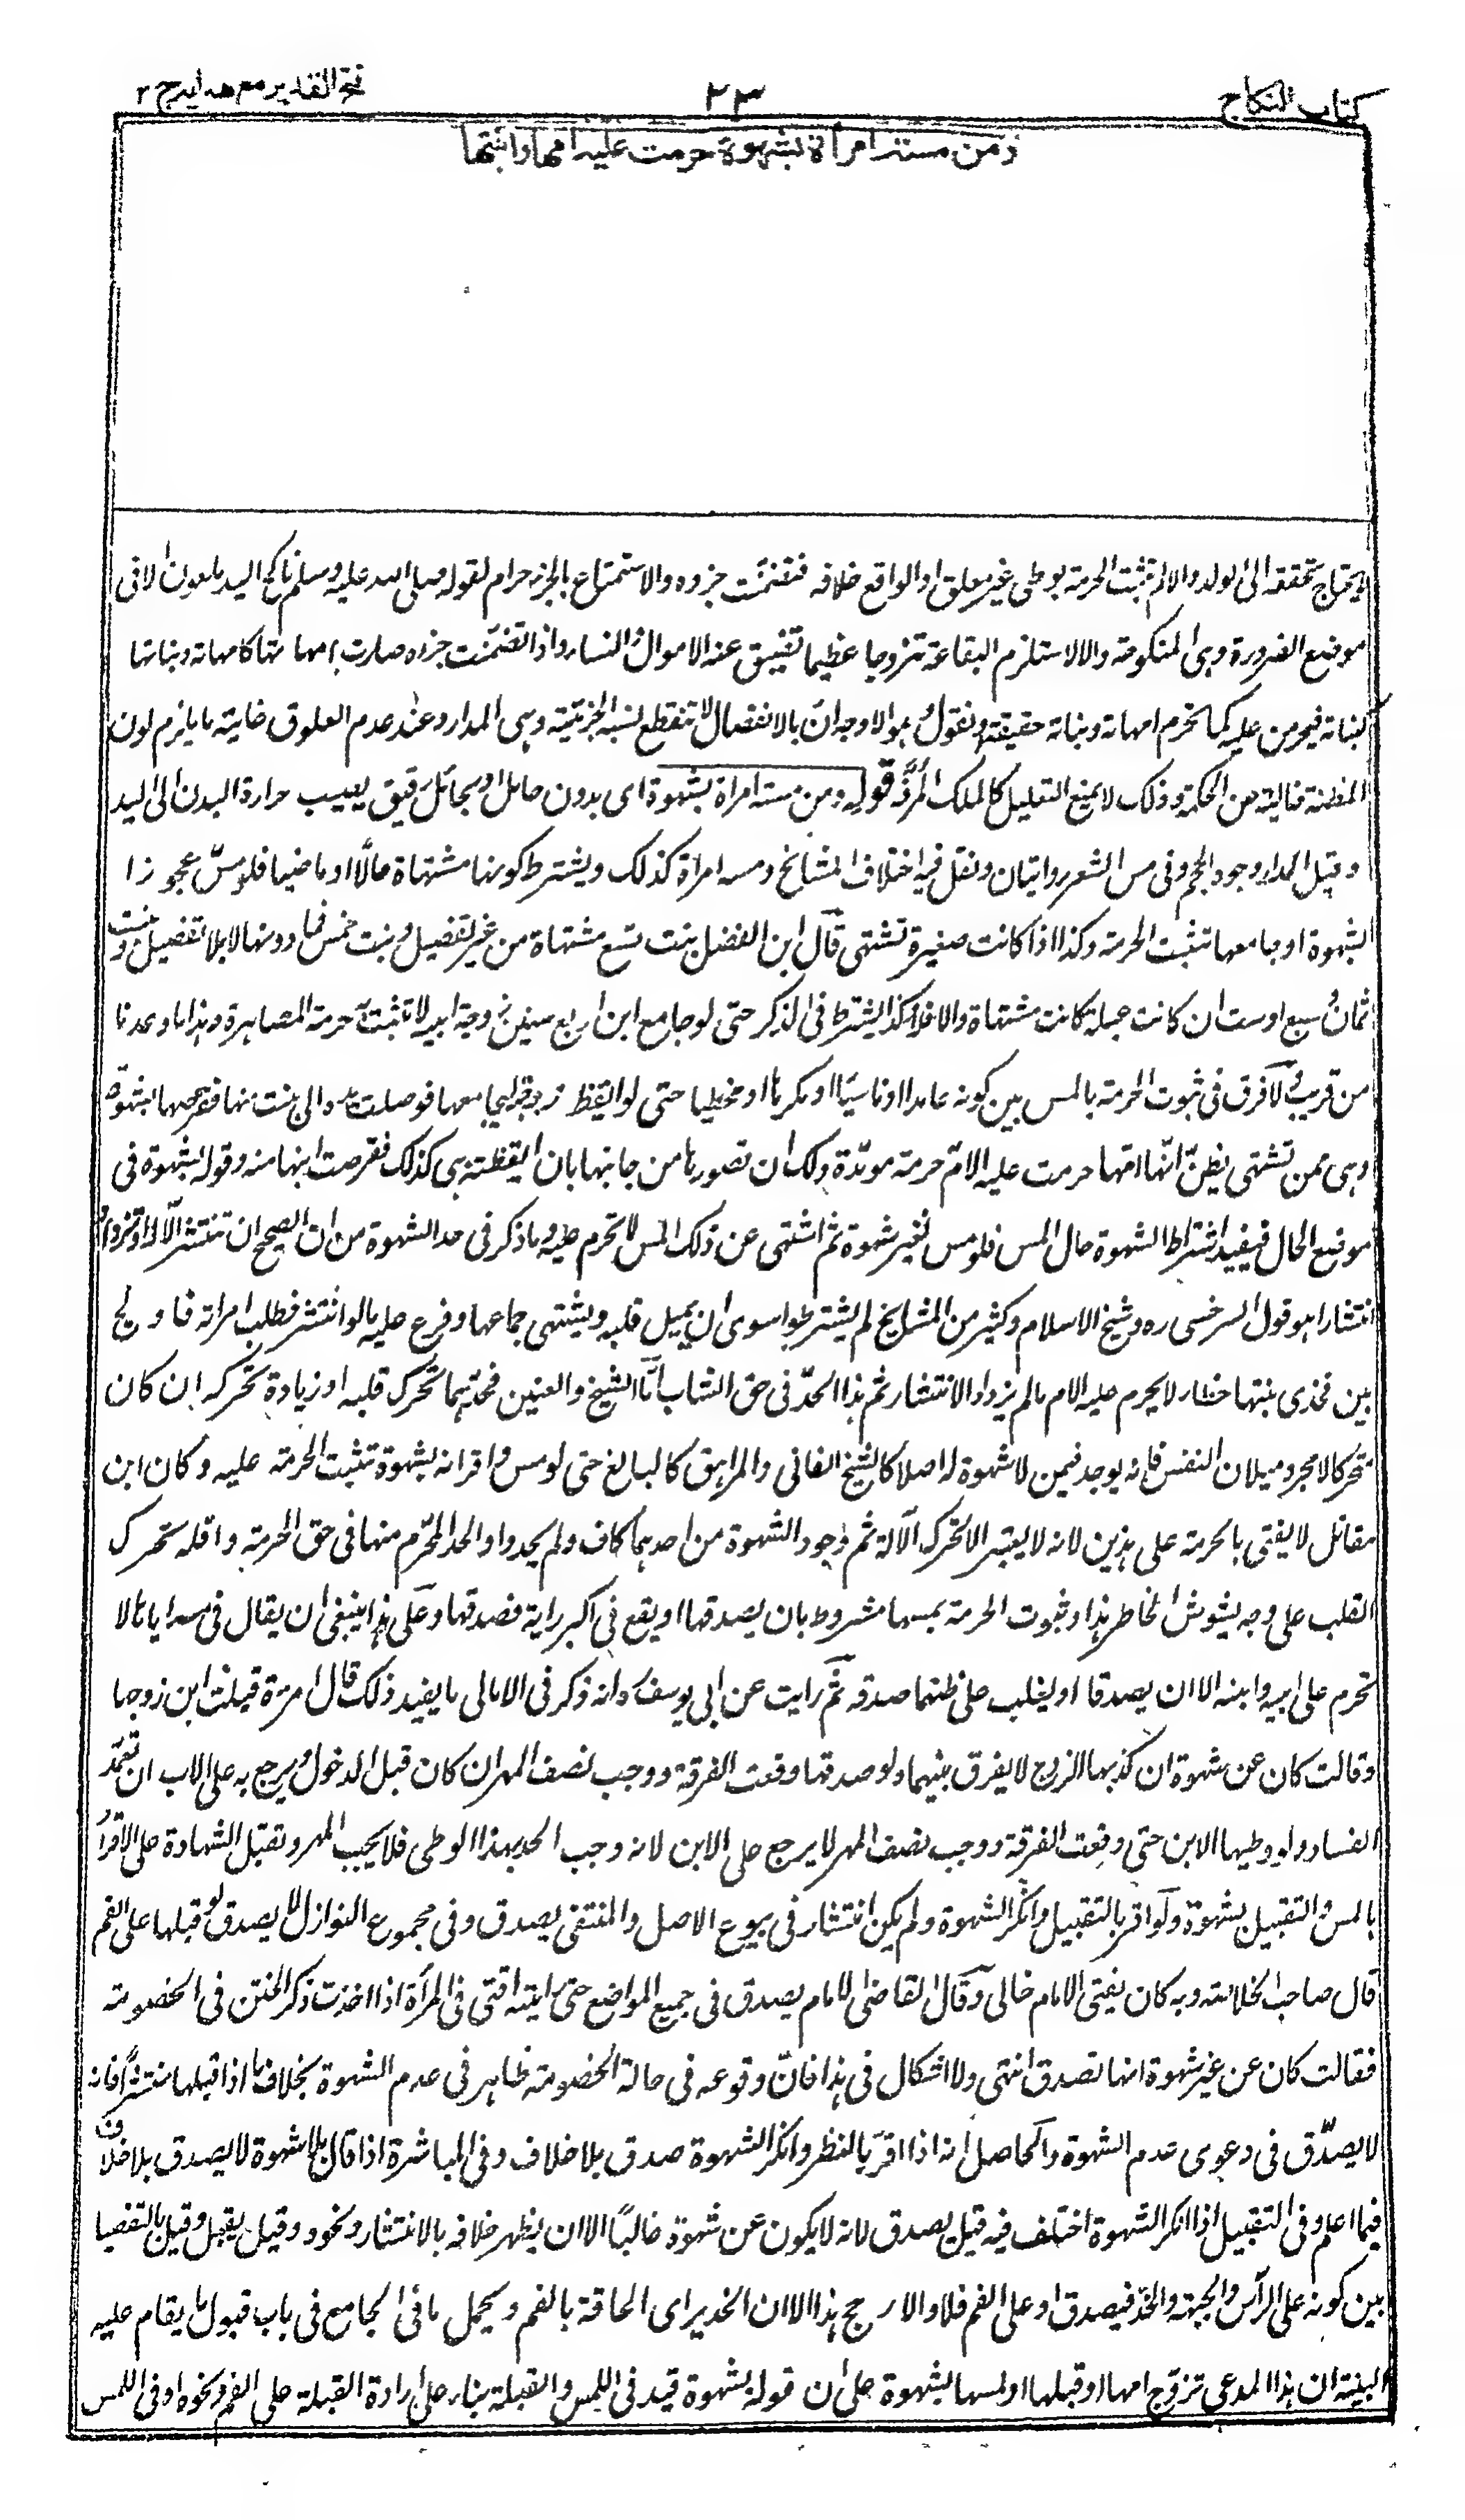 كتاب النكاح
٢٣
فتح القدير مع هدايه ج ٢
ومن مسته امرأة بشهوة حرمت عليه امها وابنتها
تحققه الى الولد والا لم تثبت الحرمة بوطى غير معلق والواقع خلافه فتضمنت جزوه والاستمتاع بالجزء حرام لقوله صلى الله عليه وسلم ناكح اليد ملعون الا فى
موضع الضرورة وهى المنكوحة والا لاستلزم البقاء عنه تزوجها عظيما تضيق عنه الاموال والنساء واذا تضمنت جزءه صارت امهاتها كامهاته وبناتها
كبناته فيحرمن عليه كما تحرم امهاته وبناته حقيقة ونقول وهو الاوجه ان بالانفصال لا تنقطع نسبة الجزئية وهى المدار وعند عدم العلوق غايته ما يلزم كون
المظنة خالية عن الحكمة وذلك لا يمنع التعليل كالملك المرفه قوله ومن مسته امراة بشهوة اى بدون حائل او بحائل رقيق يصيب حرارة البدن الى اليد
وقيل المدار وجود الحجم وفى مس الشعر روايتان ونقل فيه اختلاف المشائخ ومسه امراة كذلك ويشترط كونها مشتهاة حالا او ماضيا فلو مس عجوزا
بشهوة او جامعها تثبت الحرمة وكذا اذا كانت صغيرة تشتهى قال ابن الفضل بنت تسع مشتهاة من غير تفصيل وبنت خمس فما دونها لا بلا تفصيل وبنت
ثمان وسبع اوست ان كانت عبلة كانت مشتهاة والا فلا وكذا يشترط فى الذكر حتى لو جامع ابن اربع سنين زوجة ابيه لا تثبت حرمة المصاهرة وهذا ما وعدنا
من قريب ولا فرق فى ثبوت الحرمة بالمس بين كونه عامدا او ناسيا او مكرها او مخطيا حتى لو ايقظ زوجته ليجامعها فوصلت يده الى بنته منها فقرصها بشهوة
وهى ممن تشتهى يظن انها امها حرمت عليه الام حرمة مؤبدة ولك ان تصورها من جانبها بان ايقظته هى كذلك فقرصت ابنها منه وقوله بشهوة فى
موضع الحال فيفيد اشتراط الشهوة حال المس فلو مس بغير شهوة ثم اشتهى عن ذلك المس لا تحرم عليه وما ذكر فى حد الشهوة من ان الصحيح ان تنتشر الآلة او تزداد
انتشارا هو قول السرخسى ره وشيخ الاسلام وكثير من المشايخ لم يشترطوا سوى ان يميل قلبه ويشتهى جماعها وفرع عليه ما لو انتشر فطلب امراته فاولج
بين فخذى بنتها خطاء لا يحرم عليه الام ما لم يزدد الانتشار ثم هذا الحد فى حق الشاب اما الشيخ والعنين فحدهما تحرك قلبه او زيادة تحركه ان كان
متحركا لا مجرد ميلان النفس فانه يوجد فيمن لا شهوة له اصلا كالشيخ الفانى والمراهق كالبالغ حتى لو مس واقر انه بشهوة تثبت الحرمة عليه وكان ابن
مقاتل لا يفتى بالحرمة على هذين لانه لا يعتبر الا تحرك الآلة ثم وجود الشهوة من احدهما كاف ولم يحدوا الحد المحرم منها فى حق الحرمة واقله تحرك
القلب على وجه يشوش الخاطر هذا وثبوت الحرمة بمسها مشروط بان يصدقها او يقع فى اكبر رايه صدقها وعلى هذا ينبغى ان يقال فى مسه اياها لا
تحرم على ابيه وابنه الا ان يصدقا او يغلب على ظنهما صدقه ثم رايت عن ابى يوسف انه ذكر فى الامالى ما يفيد ذلك قال امرءة قبلت ابن زوجها
وقالت كان عن شهوة ان كذبها الزوج لا يفرق بينهما ولو صدقها وقعت الفرقة ووجب نصف المهر ان كان قبل الدخول ويرجع به على الاب ان تعمد
الفساد ولو وطيها الابن حتى وقعت الفرقة ووجب نصف المهر لا يرجع على الابن لانه وجب الحد بهذا الوطى فلا يجب المهر وتقبل الشهادة على الاقرار
بالمس والتقبيل بشهوة ولو اقر بالتقبيل وانكر الشهوة ولم يكن انتشار فى بيوع الاصل والمنتقى يصدق وفى مجموع النوازل لا يصدق لو قبلها على الفم
قال صاحب الخلاصة وبه كان يفتى الامام خالى وقال القاضى الامام يصدق فى جميع المواضع حتى رايته افتى فى المرأة اذا اخذت ذكر الختن فى الخصومة
فقالت كان عن غير شهوة انها تصدق انتهى ولا اشكال فى هذا فان وقوعه فى حالة الخصومة ظاهر فى عدم الشهوة بخلاف ما اذا قبلها منتشرا فانه
لا يصدق فى دعوى عدم الشهوة والحاصل انه اذا اقر بالنظر وانكر الشهوة صدق بلا خلاف وفى المباشرة اذا قال بلا شهوة لا يصدق بلا خلاف
فيما اعلم وفى التقبيل اذا انكر الشهوة اختلف فيه قيل يصدق لانه لا يكون عن شهوة غالبا الا ان يظهر خلافه بالانتشار ونحوه وقيل يقبل وقيل بالتفصيل
بين كونه على الرأس والجبهة والخد فيصدق او على الفم فلا والارجح هذا الا ان الخد يراى الحاقه بالفم ويحمل ما فى الجامع فى باب قبول ما يقام عليه
البينة ان هذا المدعى تزوج امها او قبلها او لمسها بشهوة على ان قوله بشهوة قيد فى اللمس والقبلة بناء على ارادة القبلة على الفم ونحوه او فى اللمس